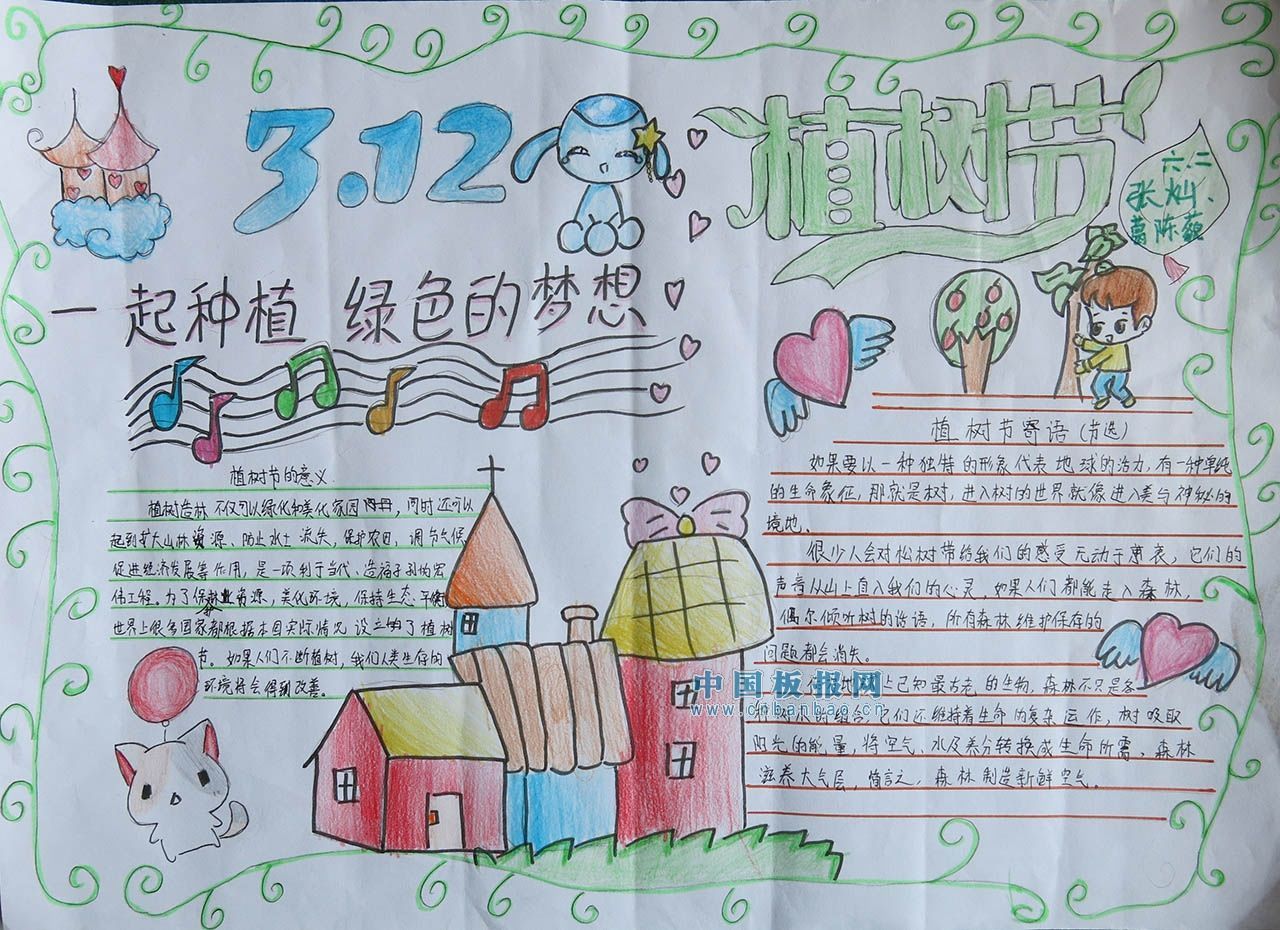 3.12
植树节
六二
张灿、
葛陈薇
一起种植 绿色的梦想
植树节的意义
植树造林不仅可以绿化和美化家园，同时还可以
起到扩大山林资源、防止水土流失，保护农田，调节气候
促进经济发展等作用，是一项利于当代、造福子孙的宏
伟工程。为了保林业资源，美化环境，保持生态平衡
世界上很多国家都根据本国实际情况设立的了植树
节。如果人们不断植树，我们人类生存的
环境将会得到改善。
植树节寄语(节选)
如果要以一种独特的形象代表地球的活力，有一种单纯
的生命象征，那就是树，进入树的世界就像进入美与神秘的
境地、
很少人会对松树带给我们的感受无动于衷，它们的
声音从山上直入我们的心灵，如果人们都能走入森林，
偶尔倾听树的话语，所有森林维护保存的
问题都会消失。
上已知最古老的生物，森林不只是各
组合，它们还维持着生命的复杂运作，树吸取
阳光的能量，将空气、水及养分转换成生命所需、森林
滋养大气层，简言之，森林制造新鲜空气。
中国板报网
www.cnbanbao.cn